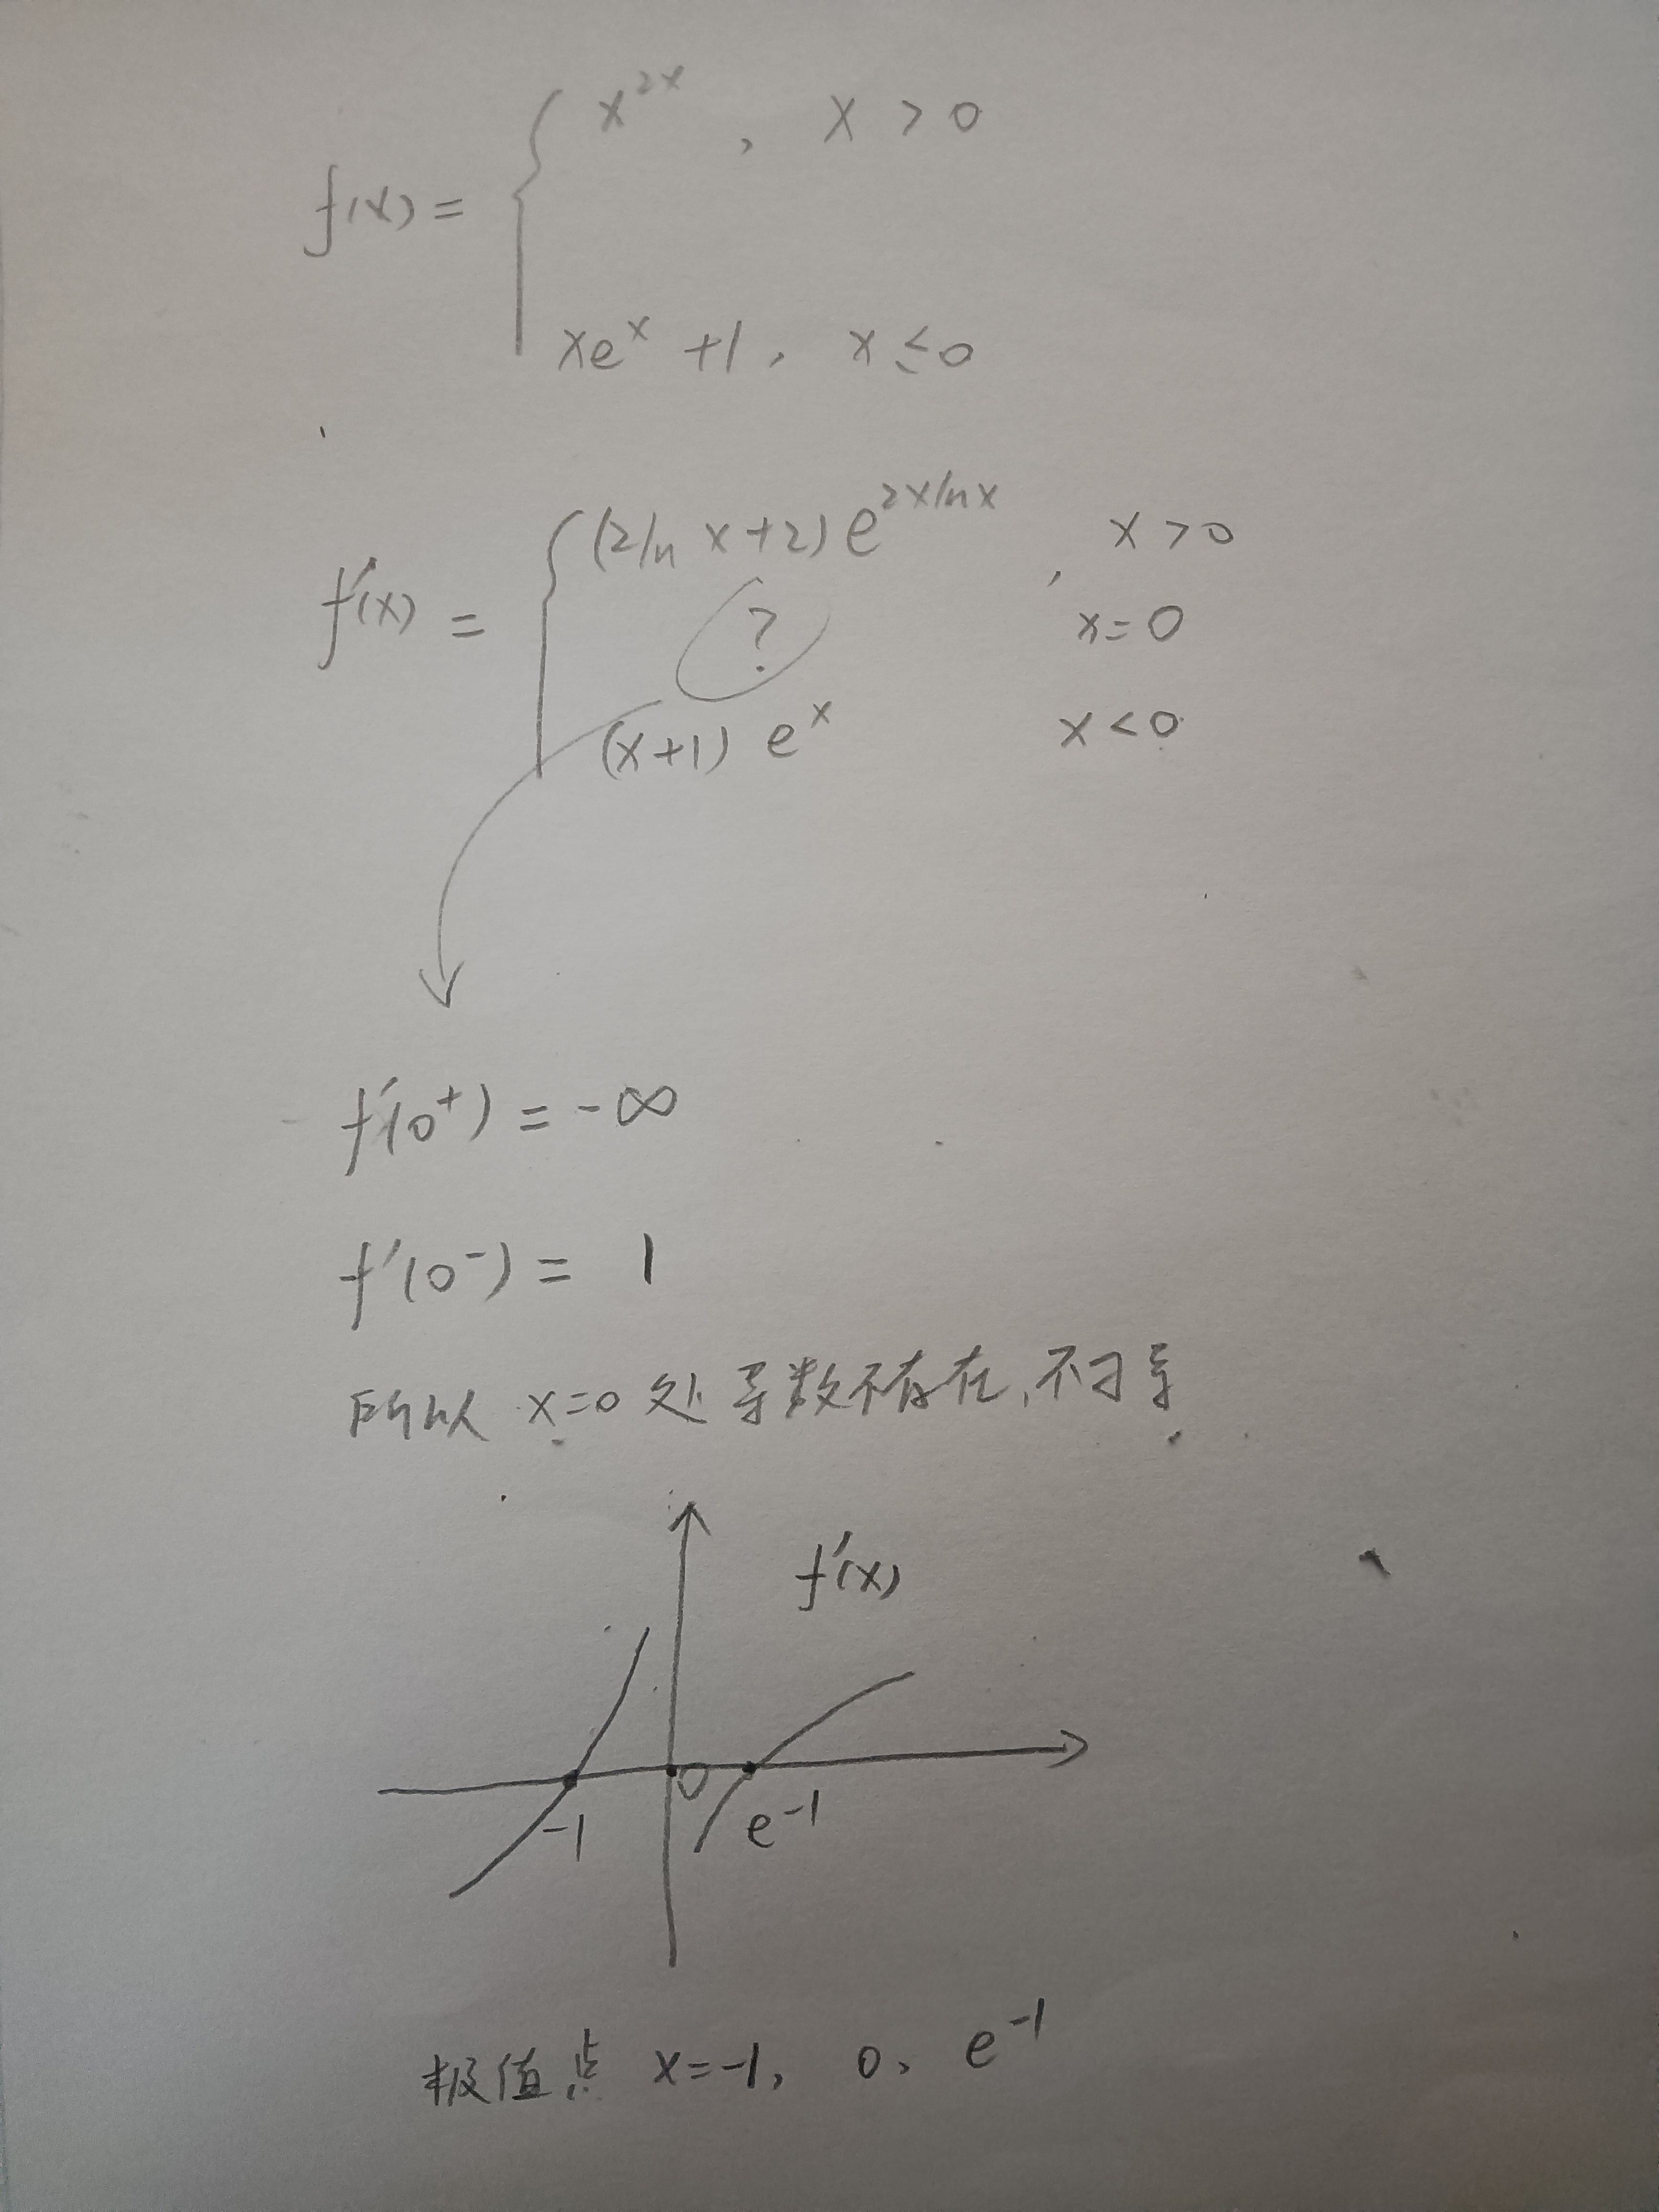 f(x) = { x^{2x} , x > 0
xe^x + 1 , x ≤ 0
f'(x) = { (2ln x+2) e^{2xlnx} , x > 0
? x = 0
(x+1) e^x x < 0
f'(0^+) = -∞
f'(0^-) = 1
所以 x=0 处导数不存在,不可导
f'(x)
-1 0 e^{-1}
极值点 x=-1, 0, e^{-1}